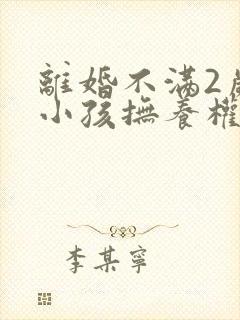 離婚不滿2歲
小孩撫養權
李某寧